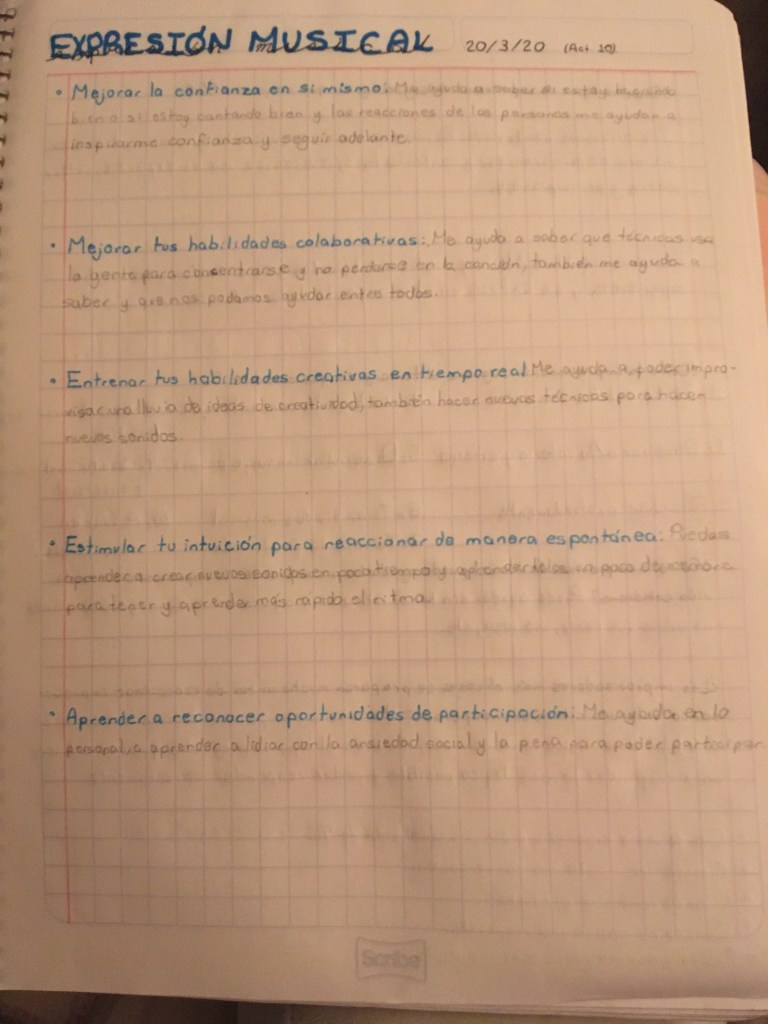 EXPRESIÓN MUSICAL 20/3/20 (Act. 10)
• Mejorar la confianza en si mismo: Me ayuda a saber si estoy
bien o si estoy cantando bien y las reacciones de las personas me ayudan a
inspirarme confianza y seguir adelante.
• Mejorar tus habilidades colaborativas: Me ayuda a saber que técnicas usa
la gente para concentrarse y no perderse en la canción, también me ayuda a
saber y que nos podamos ayudar entre todos.
• Entrenar tus habilidades creativas en tiempo real Me ayuda a poder impro-
lluvia de ideas de creatividad, también hacer nuevas técnicas para hacer
nuevos sonidos.
• Estimular tu intuición para reaccionar de manera espontánea: Puedes
aprender a crear nuevos sonidos en poco tiempo y un poco de
para tener y aprender más rápido el ritmo.
• Aprender a reconocer oportunidades de participación: Me ayuda en lo
personal, a aprender a lidiar con la ansiedad social y la pena para poder participar
Scribe